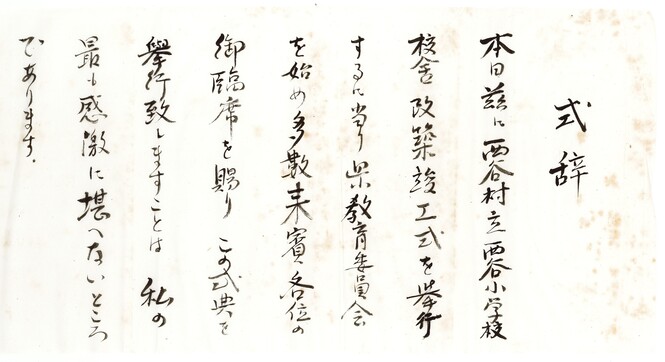 式辞
本日茲に西谷村立西谷小学校
校舎改築竣工式を挙行
するに当り県教育委員会
を始め多数来賓各位の
御臨席を賜り この式典を
挙行致しますことは 私の
最も感激に堪へないところ
であります。